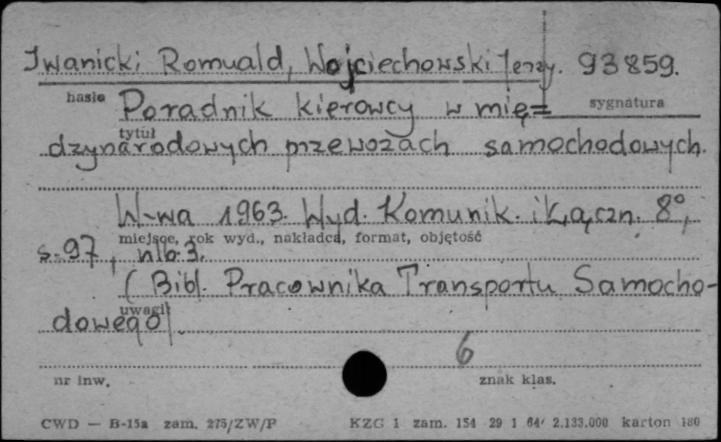 Iwanicki Romuald, Wojciechowski Jerzy. 93859.
hasło sygnatura
Poradnik kierowcy w mię=
tytuł
dzynarodowych przewozach samochodowych.
W-wa 1963. Wyd. Komunik. i Łączn. 8°,
miejsce, rok wyd., nakładca, format, objętość
s. 97, nlb. 3.
(Bibl. Pracownika Transportu Samocho-
uwagi
dowego).
6
nr inw. znak klas.
CWD — B-15a zam. 275/ZW/P KZG 1 zam. 154 29 1 64/ 2.133.000 karton 180